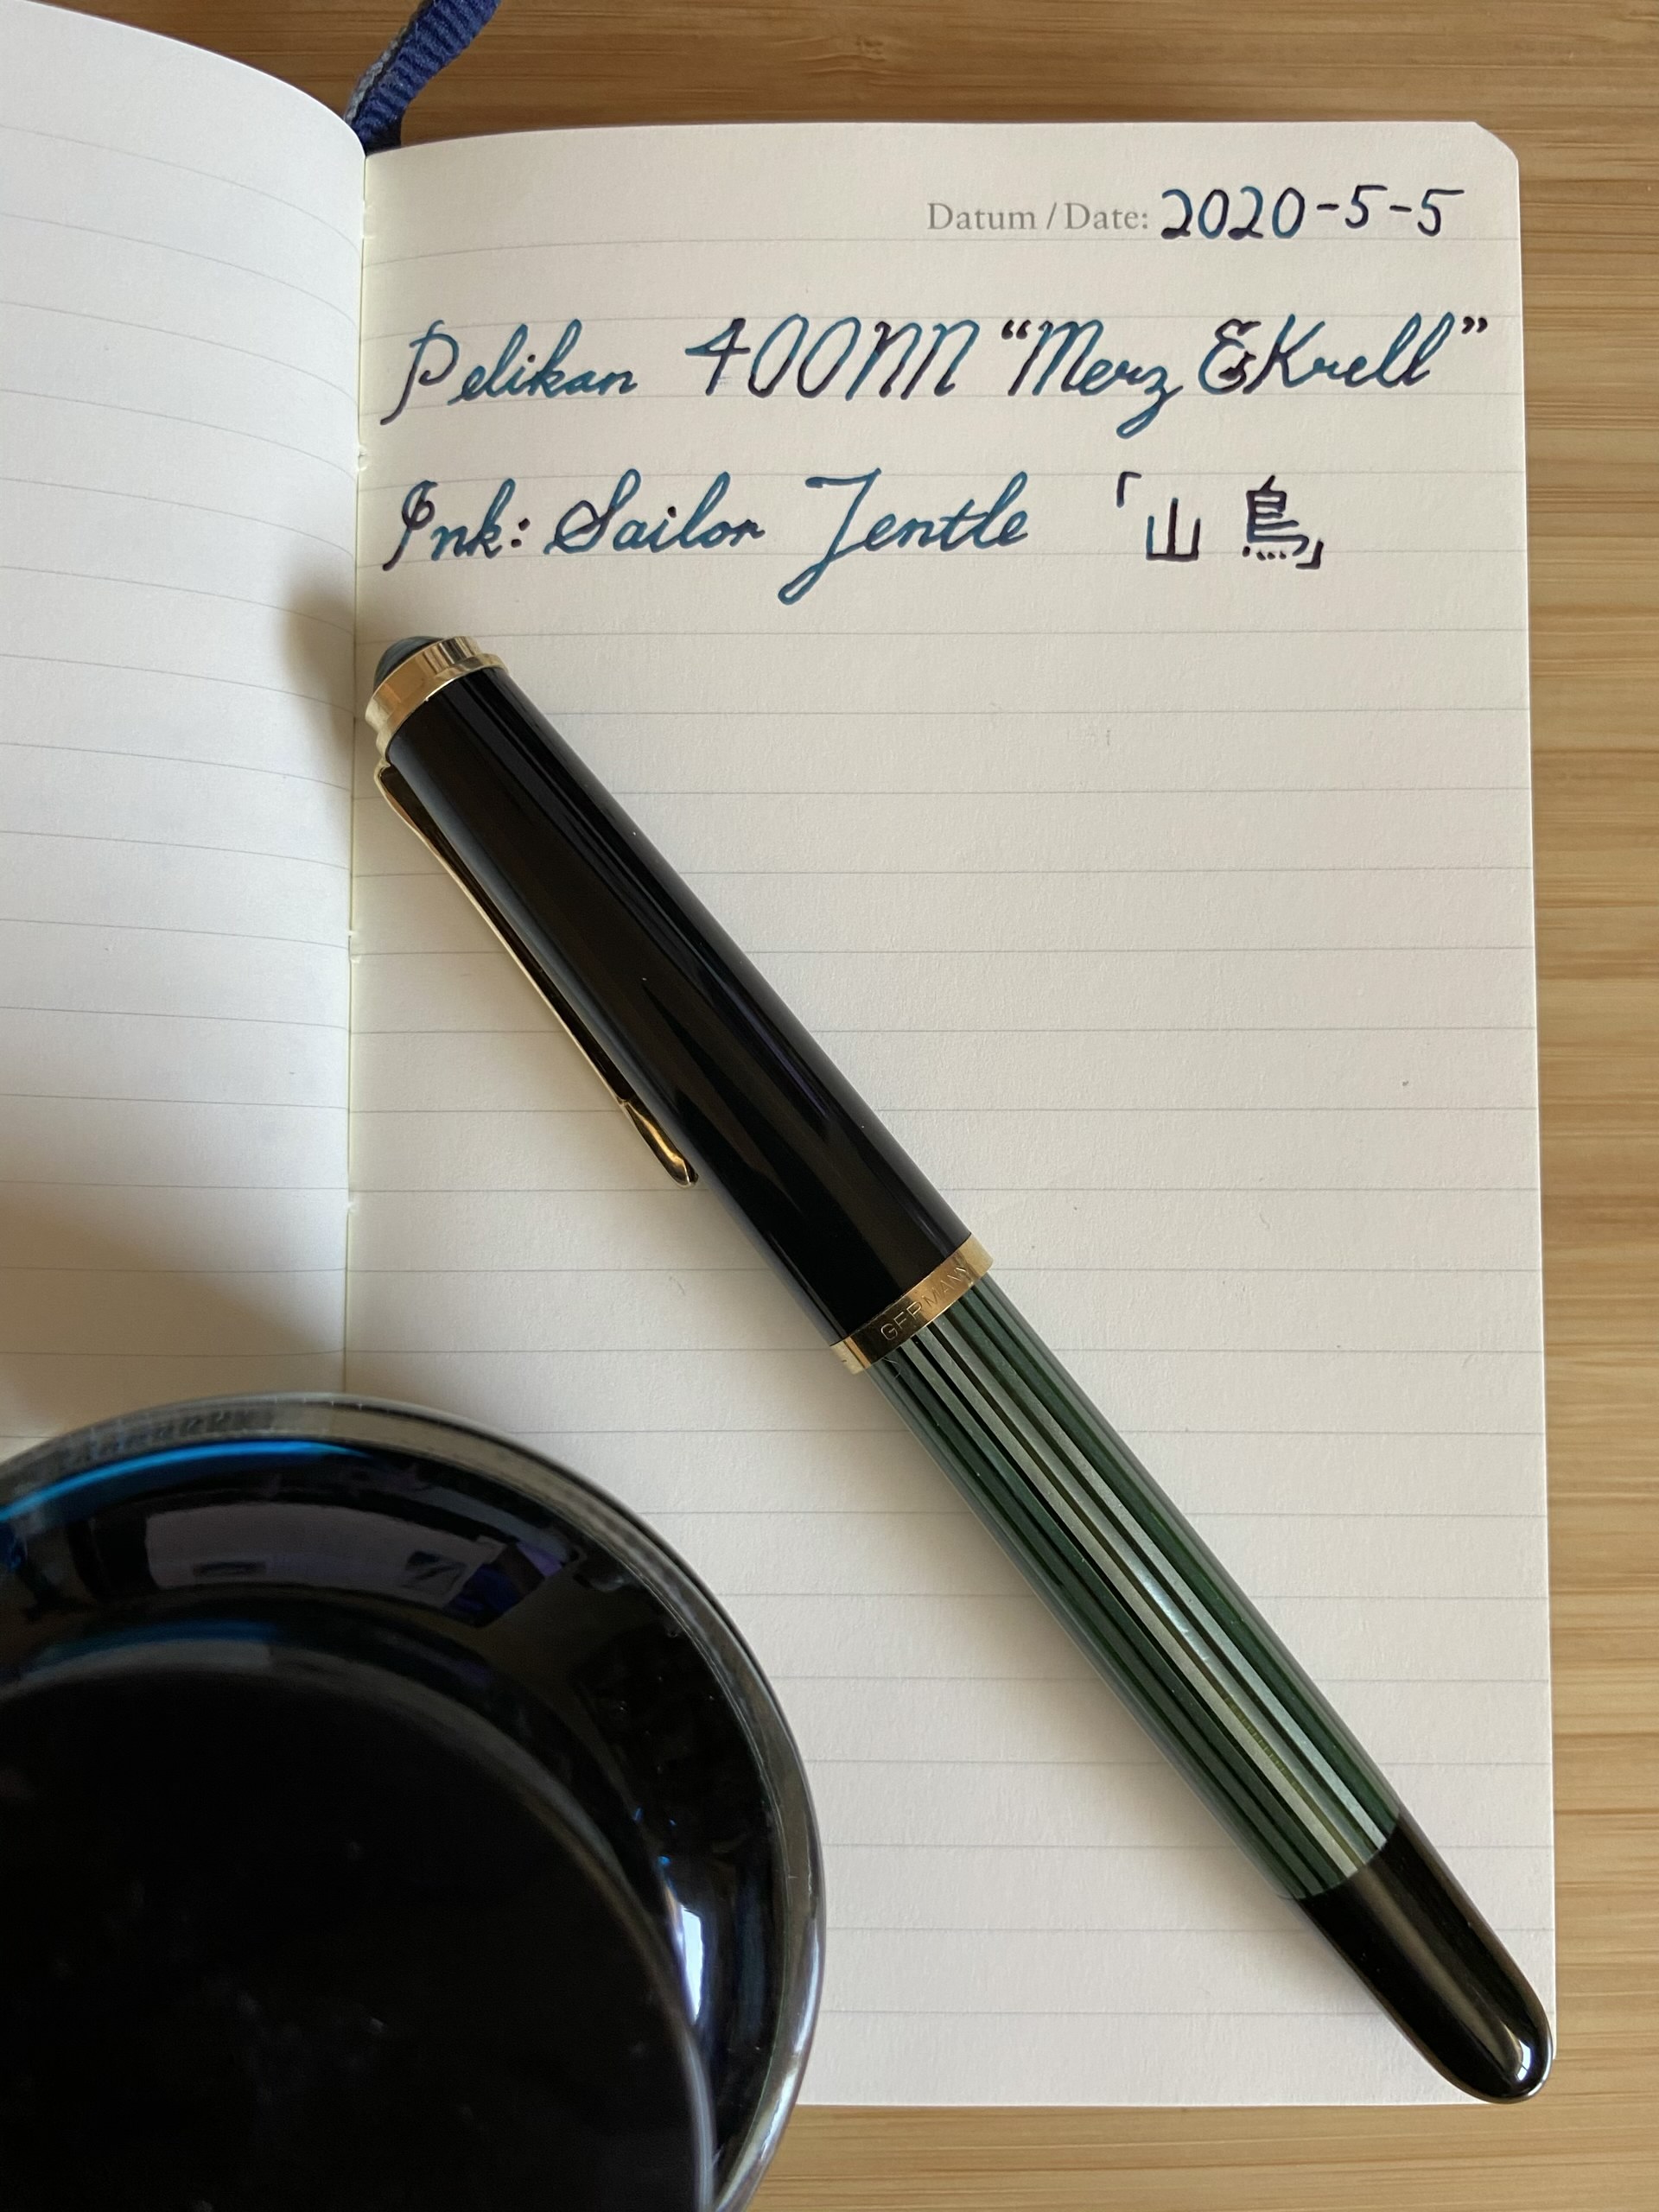 Datum / Date: 2020-5-5
Pelikan 400NN “Merz & Krell”
Ink: Sailor Jentle 「山鳥」
GERMANY